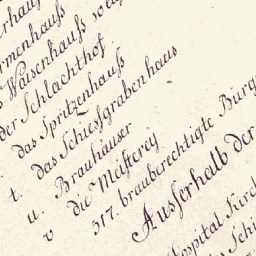 rmenhauß
Waisenhauß
der Schlachthof
das Spritzenhauß
das Schießgrabenhaus
t. Brauhäuser
u. die Meisterey
v 317. brauberechtigte Burg
Ausserhalb der
Hospital Kirch